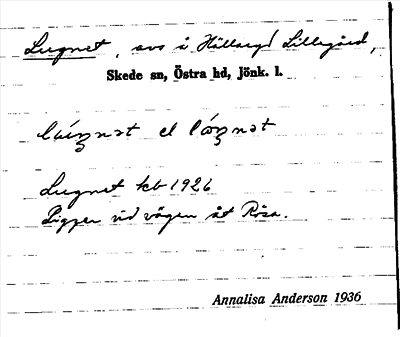 Lugnet, avs i Hällaryd Lillegård,
Skede sn, Östra hd, Jönk. l.
el
Lugnet kb 1926
Ligger vid vägen åt Rösa.
Annalisa Anderson 1936